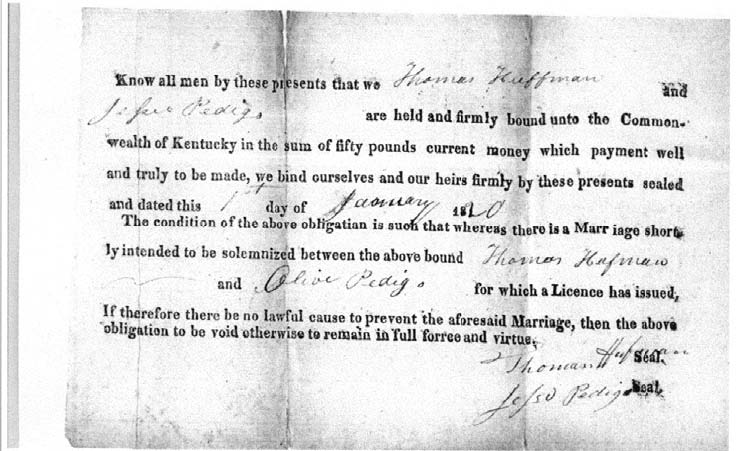 Know all men by these presents that we Thomas Huffman and
Jesse Pedigo are held and firmly bound unto the Common-
wealth of Kentucky in the sum of fifty pounds current money which payment well
and truly to be made, we bind ourselves and our heirs firmly by these presents sealed
and dated this 1st day of January 1820
The condition of the above obligatian is such that whereas there is a Marr iage short-
ly intended to be solemnized between the above bound Thomas Hufman
and Olive Pedigo for which a Licence has issued,
If therefore there be no lawful cause to prevent the aforesaid Marriage, then the above
obligation to be void otherwise to remain in full forree and virtue.
Thomas Hufman Seal.
Jesse Pedigo Seal.